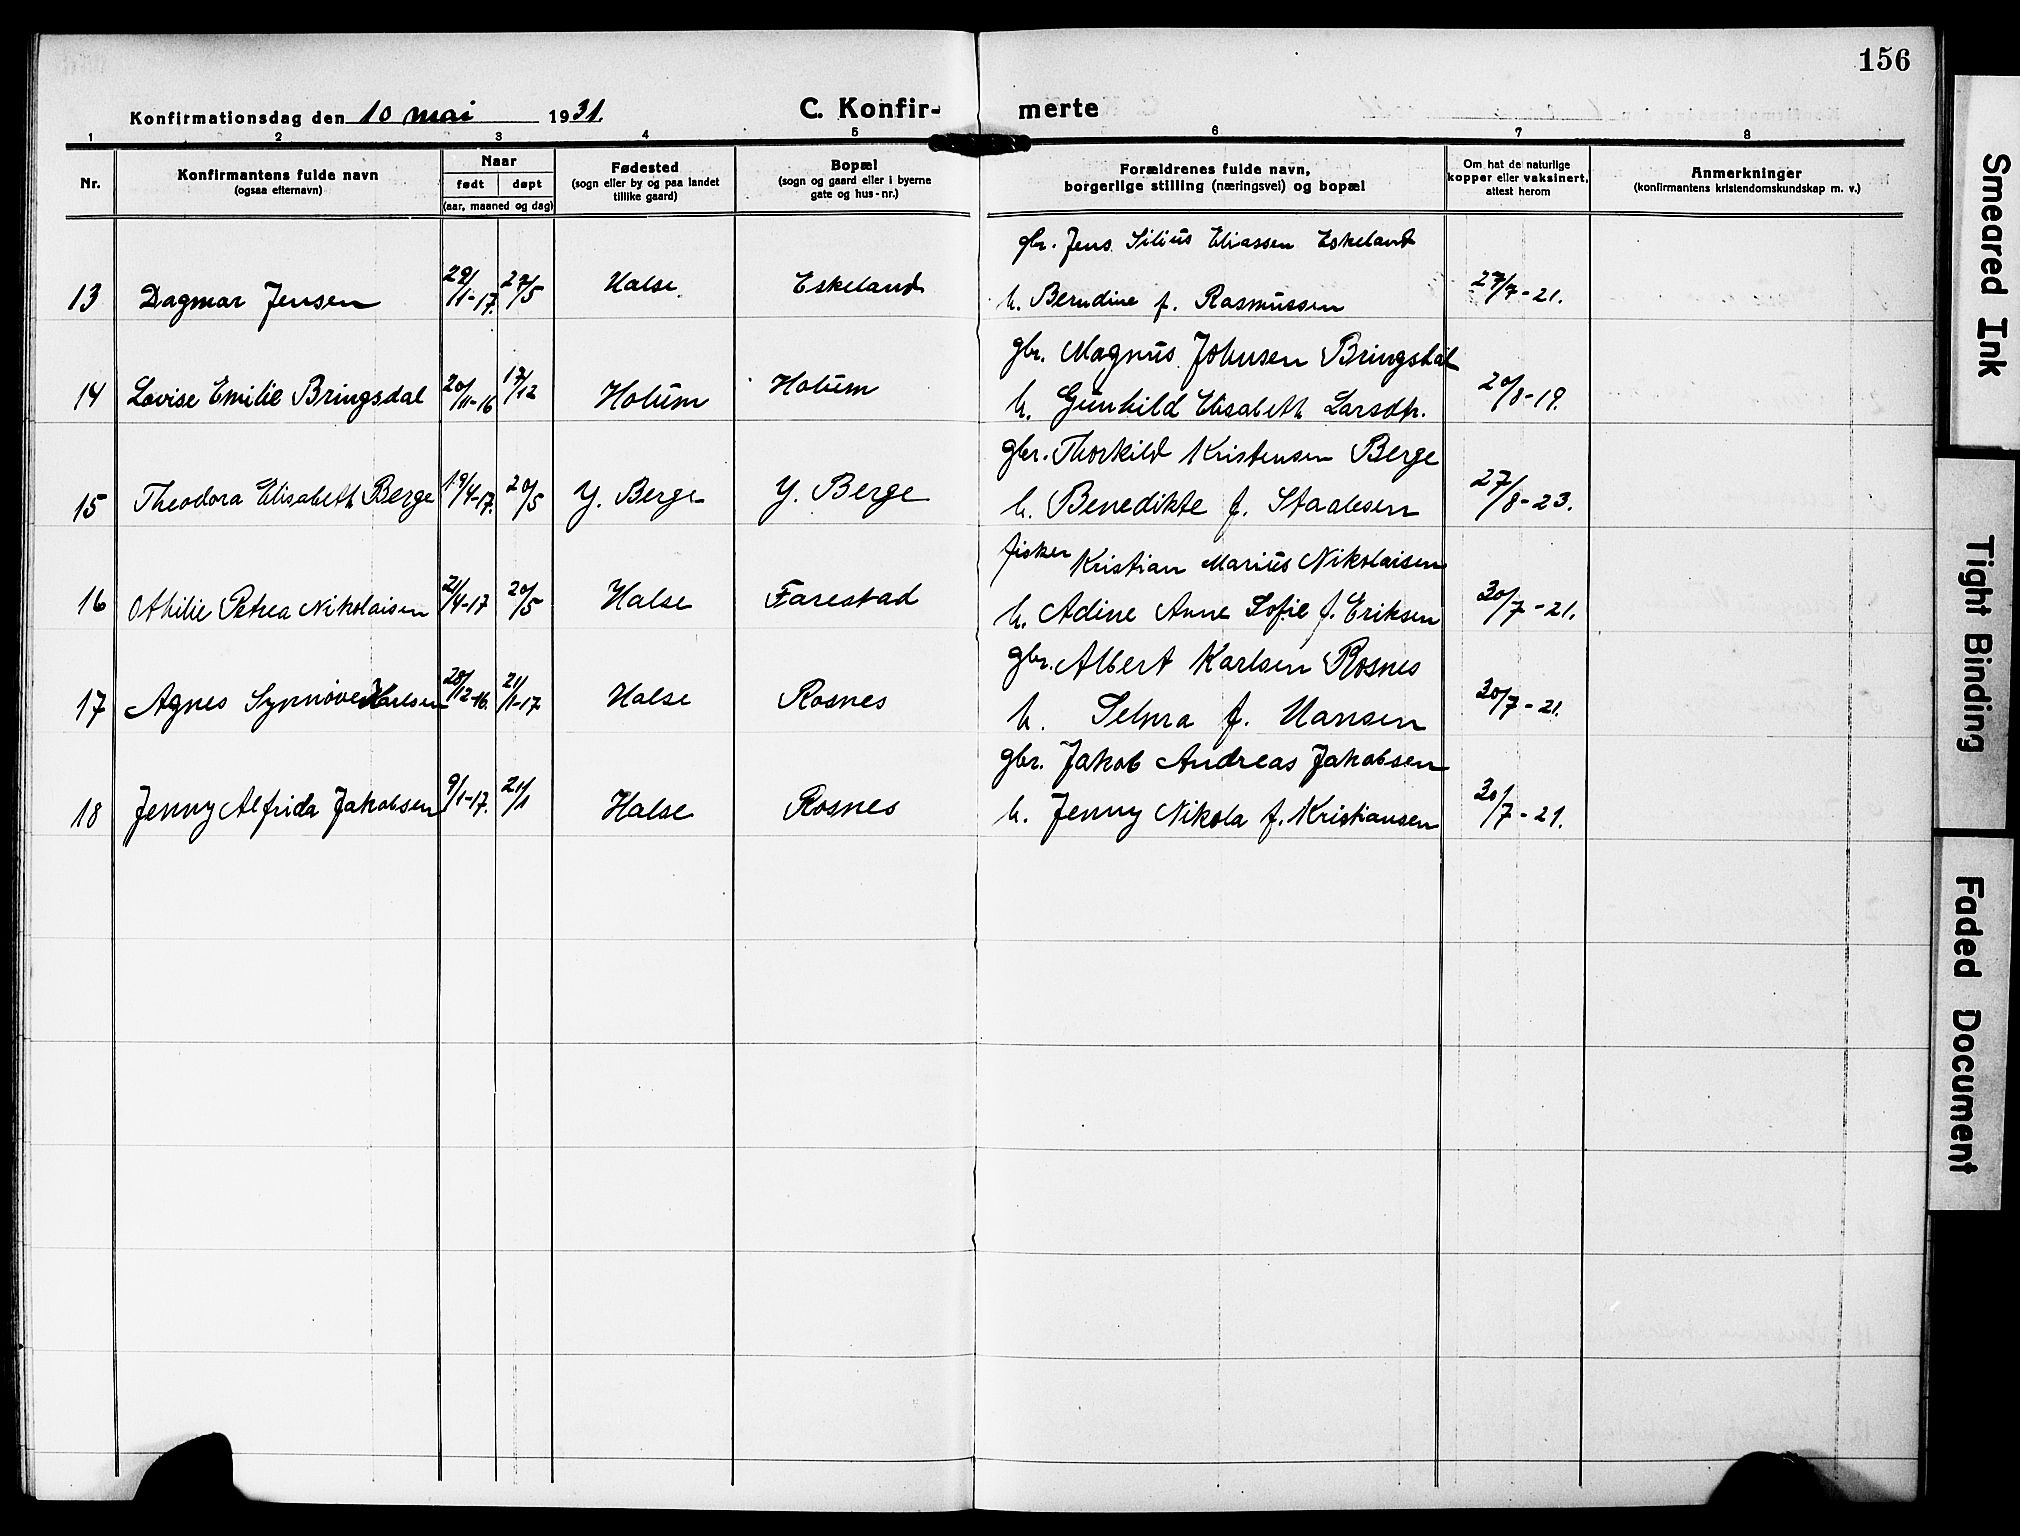 156
Konfirmationsdag den 10 mai 1931. C. Konfir- merte
1 2 3 4 5 6 7 8
Nr.
Konfirmantens fulde navn
(ogsaa efternavn)
Naar
født døpt
(aar, maaned og dag)
Fødested
(sogn eller by og paa landet
tillike gaard)
Bopæl
(sogn og gaard eller i byerne
gate og hus-nr.)
Forældrenes fulde navn,
borgerlige stilling (næringsvei) og bopæl
Om hat de naturlige
kopper eller vaksinert,
attest herom
Anmerkninger
(konfirmantens kristendomskundskap m. v.)
gbr. Jens Silius Eliassen Eskeland
13 Dagmar Jensen 29/1-17. 27/5 Halse Eskeland h. Berndine f. Rasmussen 27/7-21.
gbr. Magnus Johnsen Bringsdal
14 Lovise Emilie Bringsdal 20/11-16 17/12 Holum Holum h. Gunhild Elisabeth Larsdtr. 20/8-19.
gbr. Thorkild Kristensen Berge
15 Theodora Elisabeth Berge 19/4-17. 20/5 Y. Berge Y. Berge h. Benedikte f. Staalesen 27/8-23.
fisker Kristian Marius Nikolaisen
16 Othilie Petrea Nikolaisen 21/4-17 20/5 Halse Farestad h. Adine Anne Sofie f. Eriksen 30/7-21.
gbr. Albert Karlsen Rosnes
17 Agnes Synnøve Karlsen 28/12-16. 21/1-17 Halse Rosnes h. Selma f. Hansen 30/7-21.
gbr. Jakob Andreas Jakobsen
18 Jenny Alfrida Jakobsen 9/1-17. 21/1 Halse Rosnes h. Jenny Nikola f. Kristiansen 30/7-21.
Smeared Ink
Tight Binding
Faded Document